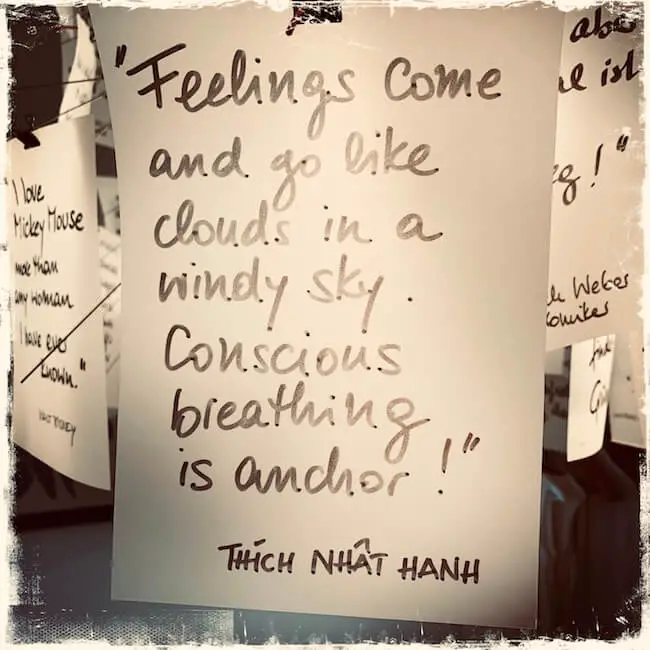 "Feelings come
and go like
clouds in a
windy sky.
Conscious
breathing
is anchor!"
THÍCH NHẤT HANH
"I love
Mickey Mouse
more than
any woman
I have ever
known."
abe
ist
!"
Weber
Komiker